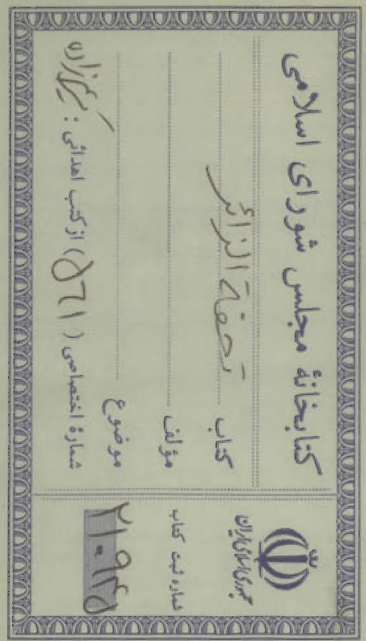 کتابخانهٔ مجلس شورای اسلامی
کتاب تحفة الزائر
مؤلف
موضوع
شمارهٔ اختصاصی ( ۵۶۱ ) از کتب اهدائی :
جمهوری اسلامی ایران
شماره ثبت کتاب
۲۱۰۹۴۵